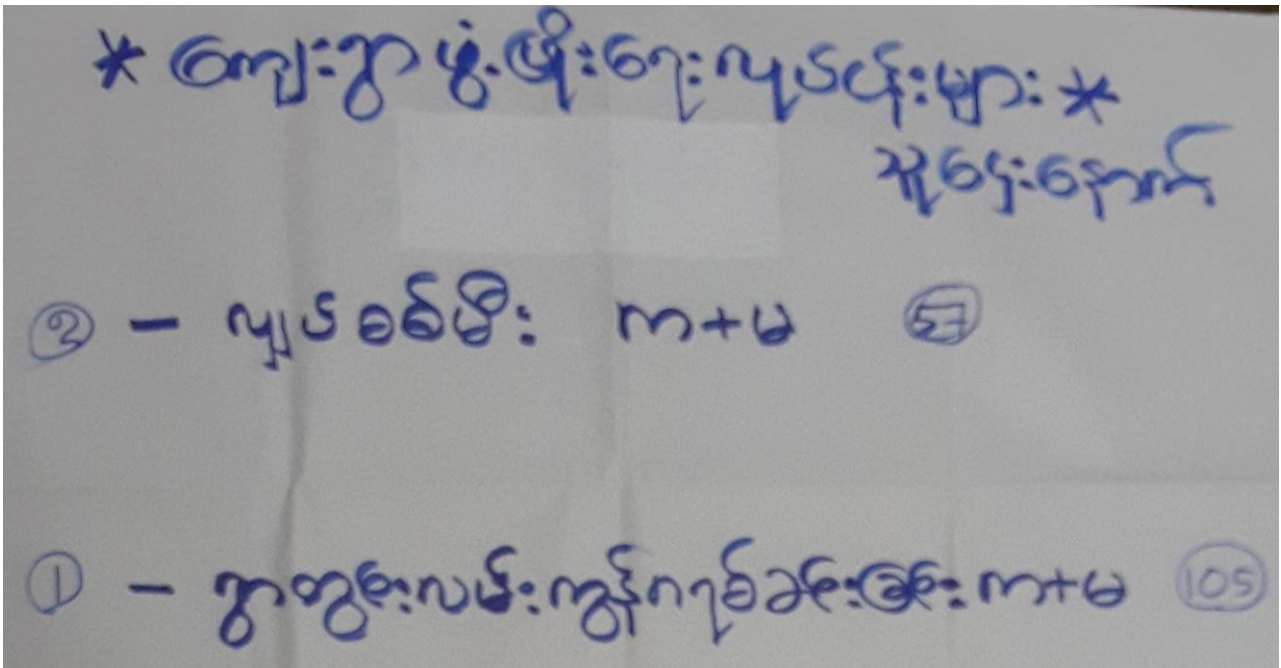 * ကျေးရွာ ဖွံ့ဖြိုးရေးလုပ်ငန်းများ *
သူဌေးနောက်
② - လျှပ်စစ်မီး က+မ 57
① - ရွာတွင်းလမ်းကွန်ကရစ်ခင်းခြင်း က+မ 105